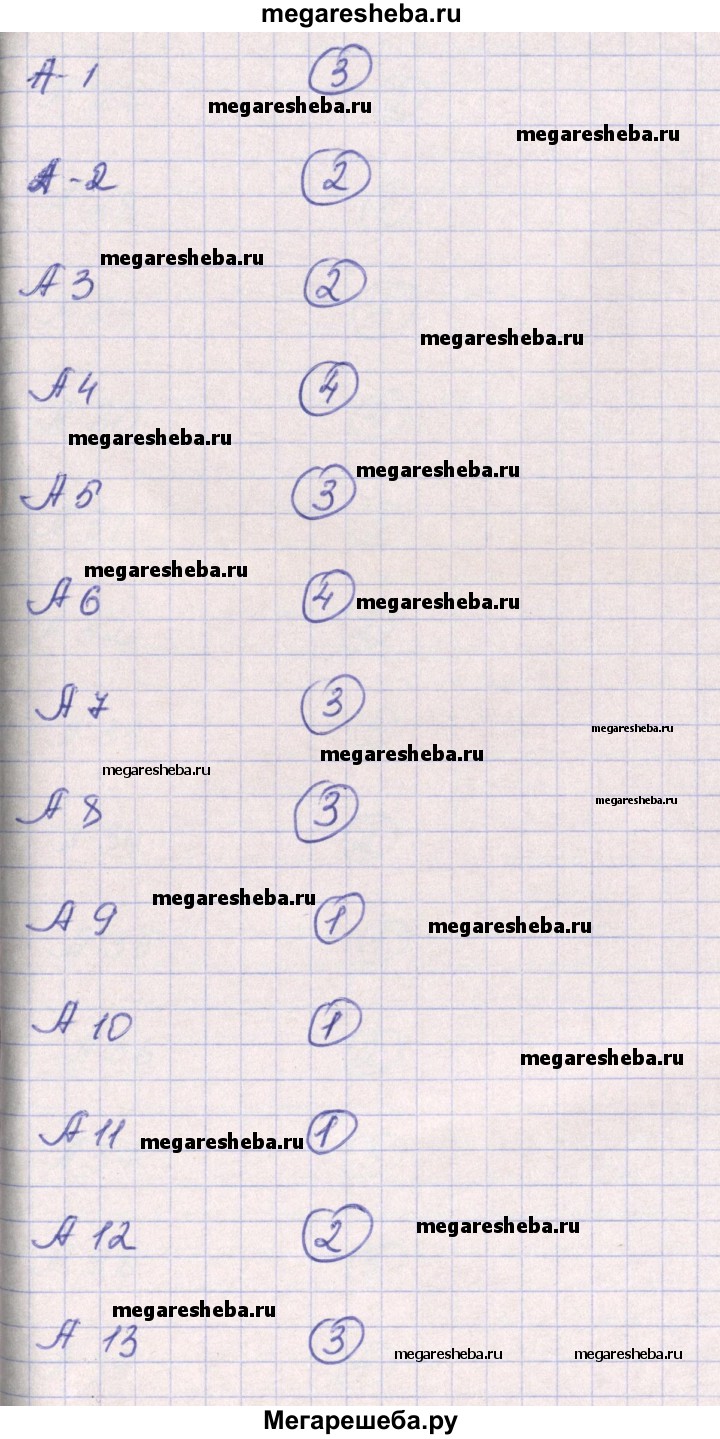 megaresheba.ru
А-1 3
megaresheba.ru
megaresheba.ru
А-2 2
megaresheba.ru
А 3 2
megaresheba.ru
А 4 4
megaresheba.ru
megaresheba.ru
А 5 3
megaresheba.ru
А 6 4 megaresheba.ru
А 7 3
megaresheba.ru
megaresheba.ru
megaresheba.ru
megaresheba.ru
А 8 3
megaresheba.ru
А 9 1 megaresheba.ru
А 10 1
megaresheba.ru
А 11 megaresheba.ru 1
megaresheba.ru
А 12 2
megaresheba.ru
А 13 3 megaresheba.ru megaresheba.ru
Мегарешеба.ру